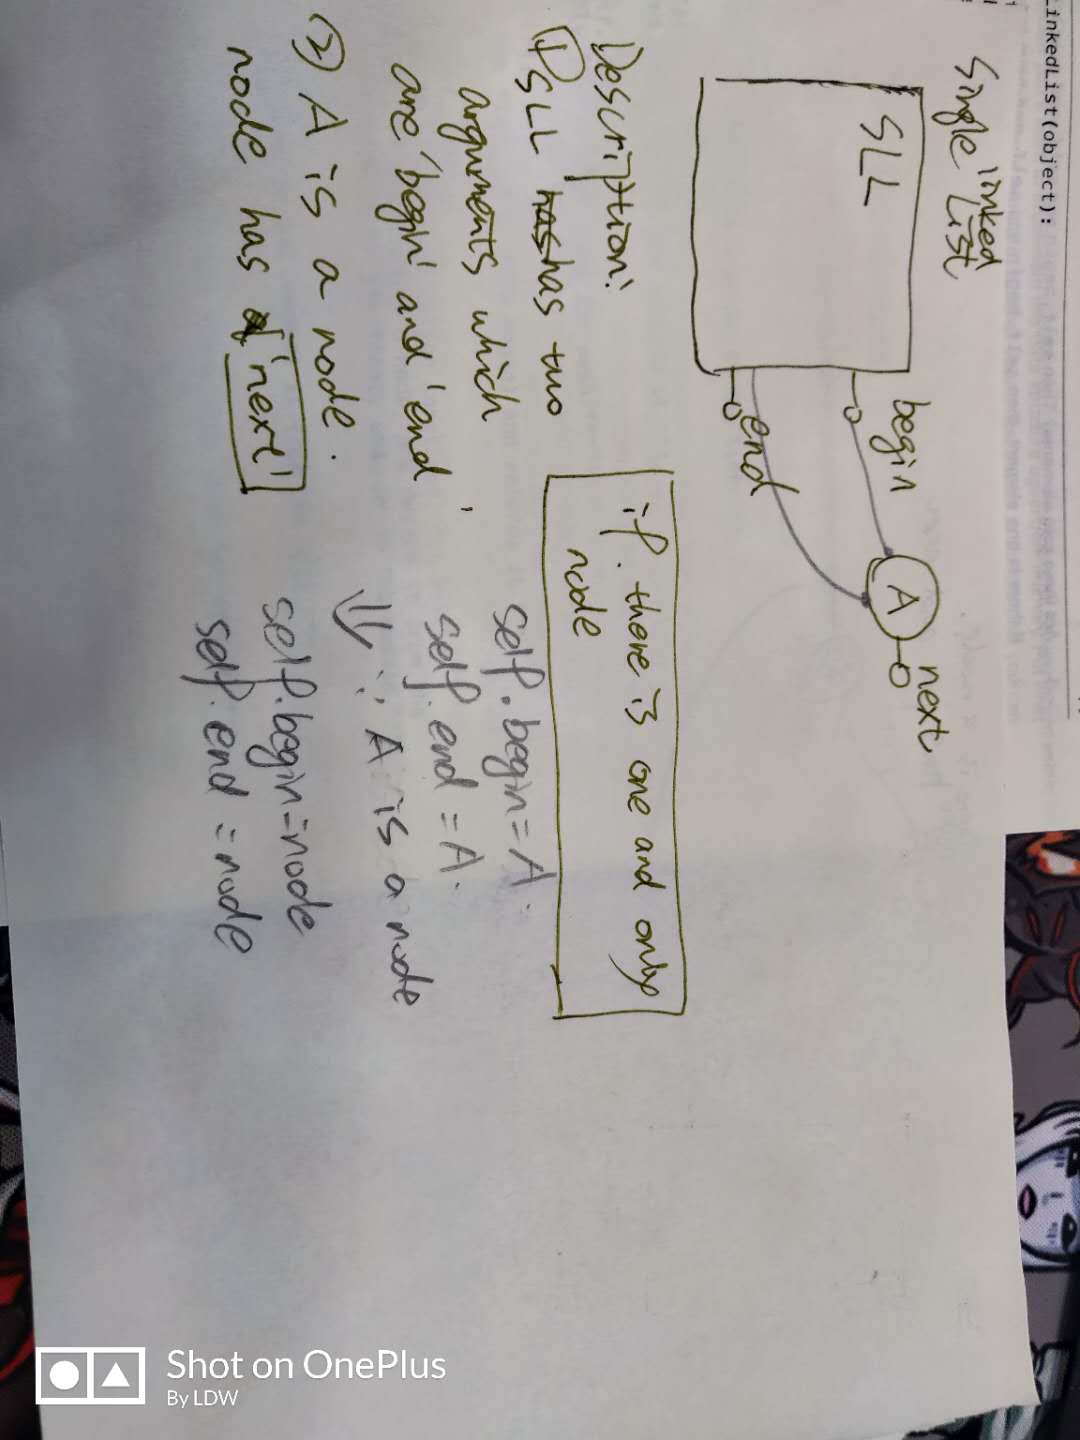 LinkedList(object):
Single linked
List
SLL
begin
end
A
next
Description:
① SLL has has two
arguments which
are 'begin' and 'end'.
② A is a node.
node has a 'next'
if there is one and only
node
self.begin = A.
self.end = A.
⇓ ∵ A is a node
self.begin = node
self.end = node
Shot on OnePlus
By LDW